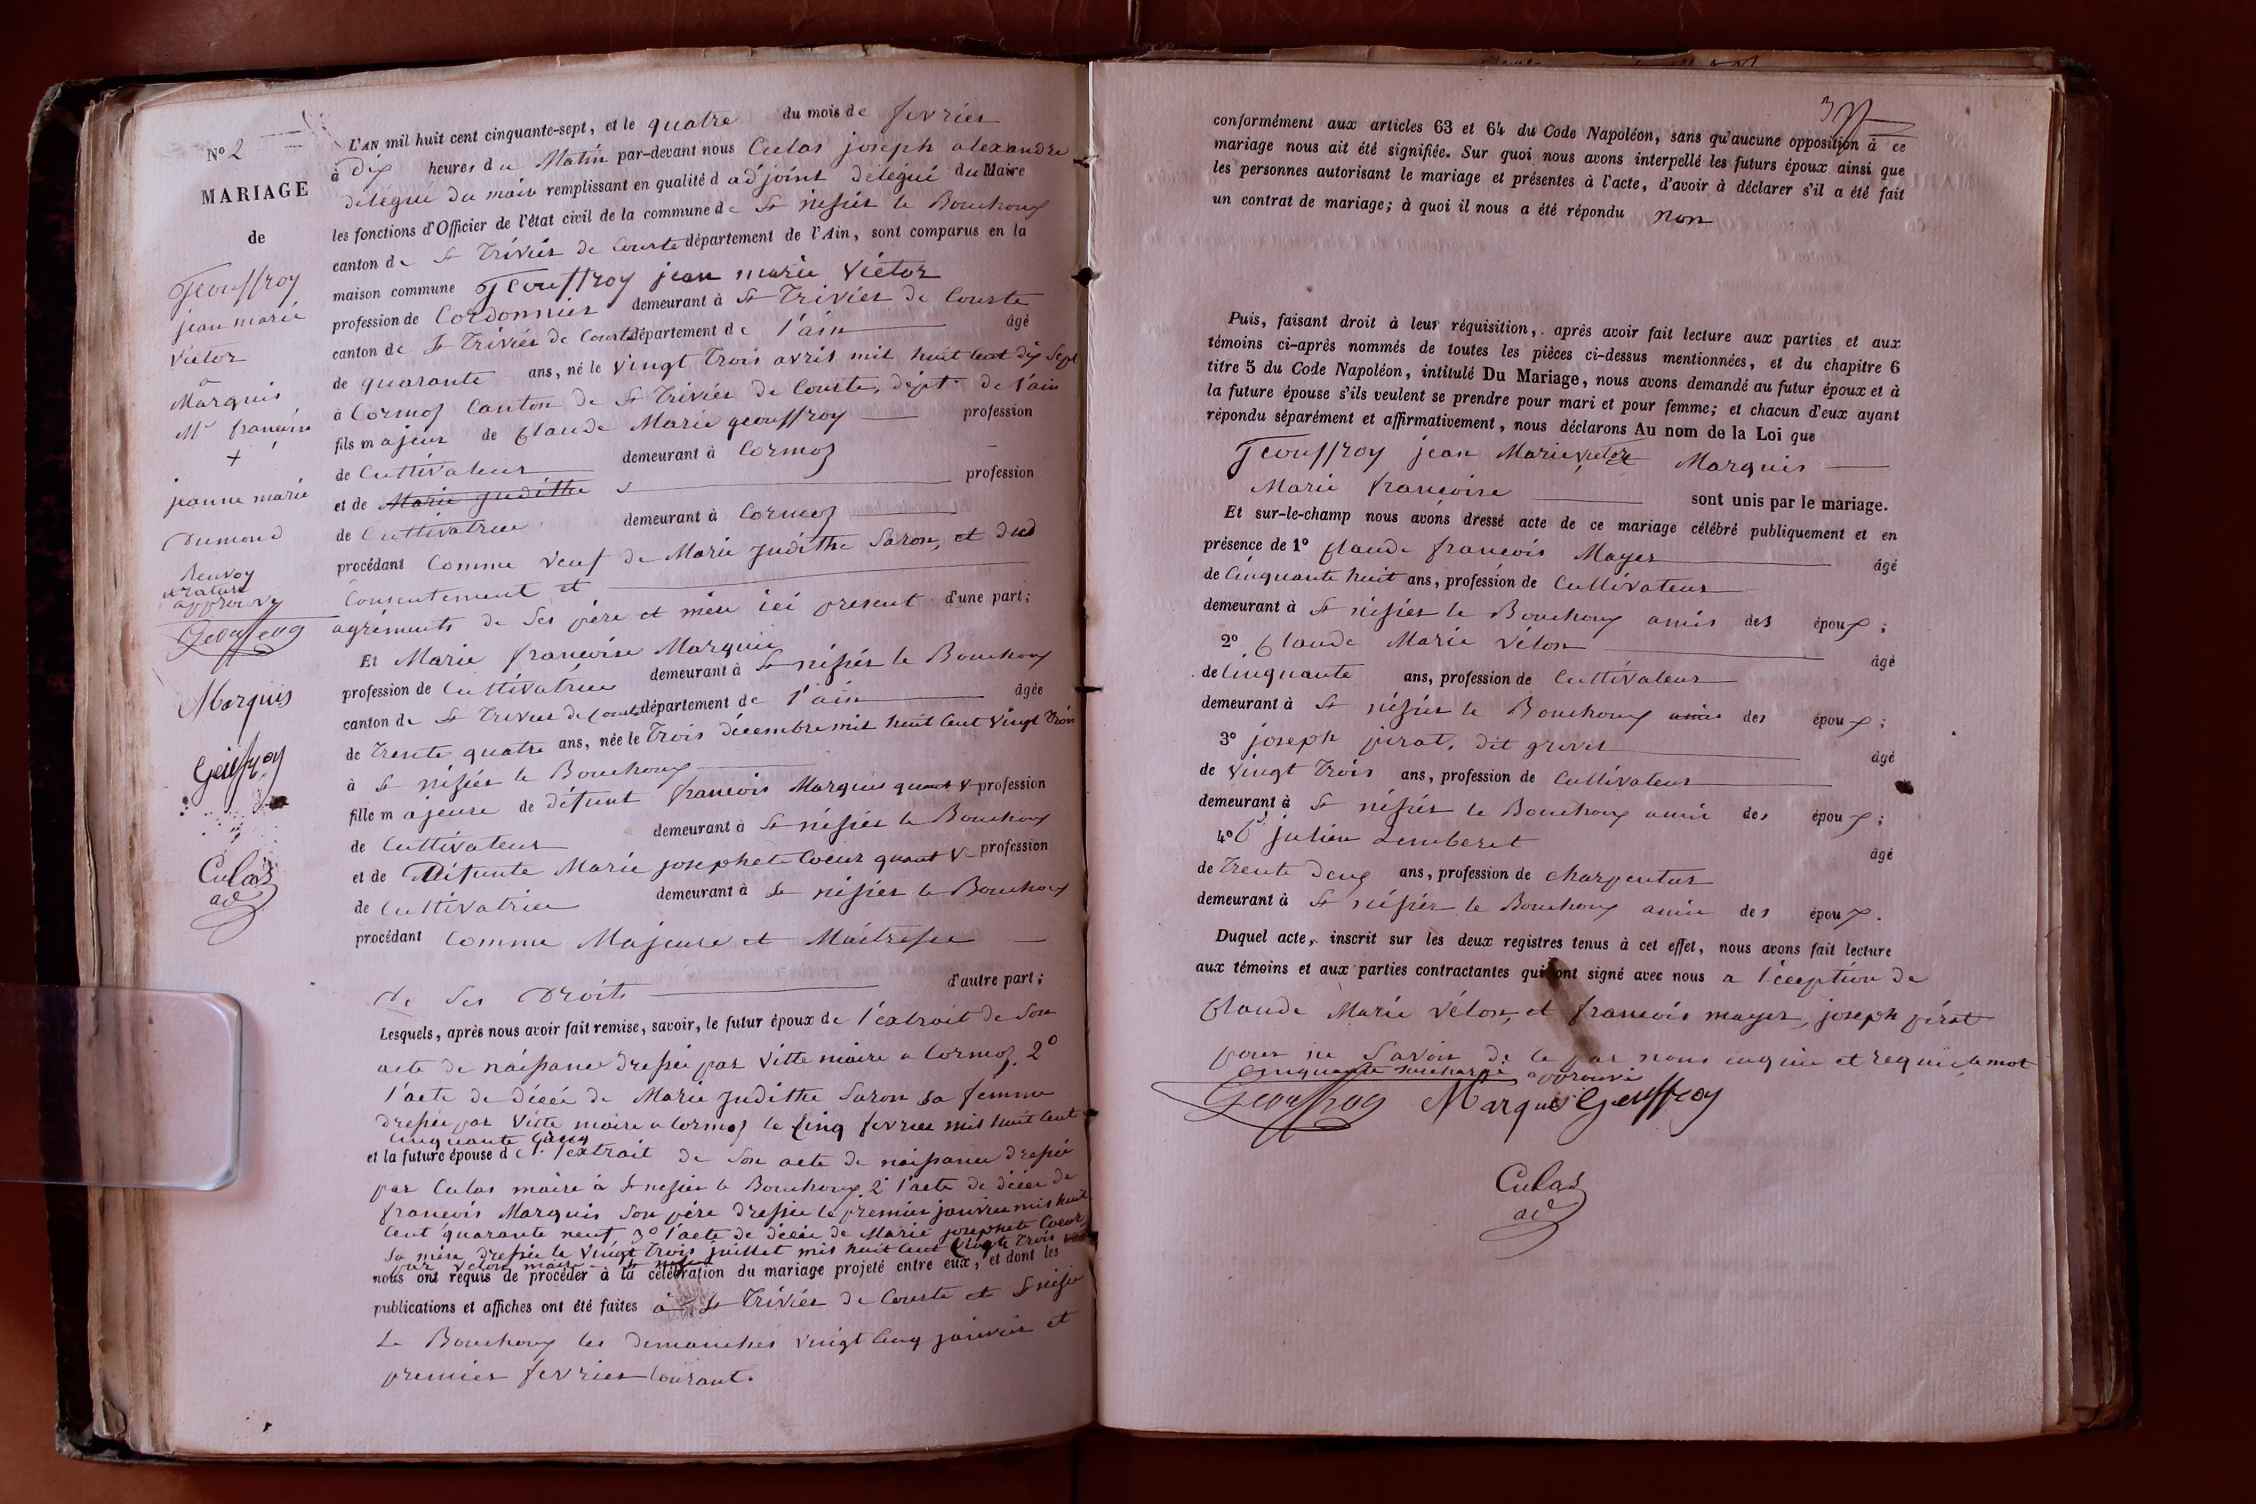 N° 2
MARIAGE
de
Geouffroy
jean marie
Victor
a
Marquis
Mie francoise
+
jeanne marie
Dumond
Renvoy
et rature
approuvé
Geouffroy
Marquis
Geuffroy
Culas
ad
L'AN mil huit cent cinquante-sept, et le quatre du mois de fevrier
à dix heures du Matin par-devant nous Culas joseph alexandre
délégué du maire remplissant en qualité d adjoint délégué du Maire
les fonctions d'Officier de l'état civil de la commune de St nisier le Bouchoux
canton de St Trivier de Courte département de l'Ain, sont comparus en la
maison commune Geouffroy jean marie Victor
profession de Cordonnier demeurant à St Trivier de Courte
canton de St Trivier de Courte département de l'ain âgé
de quarante ans, né le vingt Trois avril mil huit cent dix sept
à Cormoz Canton de St Trivier de Courte, dépt. de l'ain
fils majeur de Claude Marie geouffroy profession
de Cultivateur demeurant à Cormoz
et de Marie Judithe profession
de Cultivatrice demeurant à Cormoz
procédant Comme veuf de Marie Judithe Saron, et du
Consentement et
agréments de Ses père et mère ici present d'une part;
Et Marie francoise Marquis
profession de Cultivatrice demeurant à St nisier le Bouchoux
canton de St Trivier de Courte département de l'ain âgée
de Trente quatre ans, née le Trois décembre mil huit cent vingt Trois
à St nisier le Bouchoux
fille majeure de défunt francois Marquis quant V profession
de Cultivateur demeurant à St nisier le Bouchoux
et de Défunte Marie josephete Coeur quant V profession
de Cultivatrice demeurant à St nisier le Bouchoux
procédant Comme Majeure et Maitresse
de Ses Droits d'autre part;
Lesquels, après nous avoir fait remise, savoir, le futur époux de l'extrait de Son
acte de naissance dressée par Vitte maire a Cormoz 2°
l'acte de décée de Marie Judithe Saron Sa femme
dressée par Vitte maire a Cormoz le Cinq fevrier mil huit cent
Cinquante
et la future épouse de 1° l'extrait de Son acte de naissance dressée
par Culas maire à St nisier le Bouchoux 2° l'acte de décée de
francois Marquis Son père dressée le premier janvier mil huit
Cent quarante neuf, 3° l'acte de décée de Marie josephete Coeur
Sa mère dressée le Vingt Trois juillet mil huit cent vingt Trois
par Velon maire St nisier
nous ont requis de procéder à la célébration du mariage projeté entre eux, et dont les
publications et affiches ont été faites à St Trivier de Courte et St nisier
Le Bouchoux les dimanches vingt Cinq janvier et
premier fevrier Courant.
conformément aux articles 63 et 64 du Code Napoléon, sans qu'aucune opposition à ce
mariage nous ait été signifiée. Sur quoi nous avons interpellé les futurs époux ainsi que
les personnes autorisant le mariage et présentes à l'acte, d'avoir à déclarer s'il a été fait
un contrat de mariage; à quoi il nous a été répondu non
Puis, faisant droit à leur réquisition, après avoir fait lecture aux parties et aux
témoins ci-après nommés de toutes les pièces ci-dessus mentionnées, et du chapitre 6
titre 5 du Code Napoléon, intitulé Du Mariage, nous avons demandé au futur époux et à
la future épouse s'ils veulent se prendre pour mari et pour femme; et chacun d'eux ayant
répondu séparément et affirmativement, nous déclarons Au nom de la Loi que
Geouffroy jean Marie Victor Marquis
Marie francoise sont unis par le mariage.
Et sur-le-champ nous avons dressé acte de ce mariage célébré publiquement et en
présence de 1° Claude francois Mayer âgé
de Cinquante huit ans, profession de Cultivateur
demeurant à St nisier le Bouchoux amis des époux;
2° Claude Marie Vélon âgé
de Cinquante ans, profession de Cultivateur
demeurant à St nisier le Bouchoux amis des époux;
3° joseph pirat, dit grivet âgé
de vingt Trois ans, profession de Cultivateur
demeurant à St nisier le Bouchoux amis des époux;
4° Ct julien Lemberet âgé
de Trente deux ans, profession de charpentier
demeurant à St nisier le Bouchoux amis des époux.
Duquel acte, inscrit sur les deux registres tenus à cet effet, nous avons fait lecture
aux témoins et aux parties contractantes qui ont signé avec nous a l'éception de
Claude Marie Vélon, et francois mayer, joseph pirat
pour ne Savoir de ce par nous enquis et requis, le mot
Cinquante surchargé approuvé
Geouffroy Marquis Geuffroy
Culas
ad